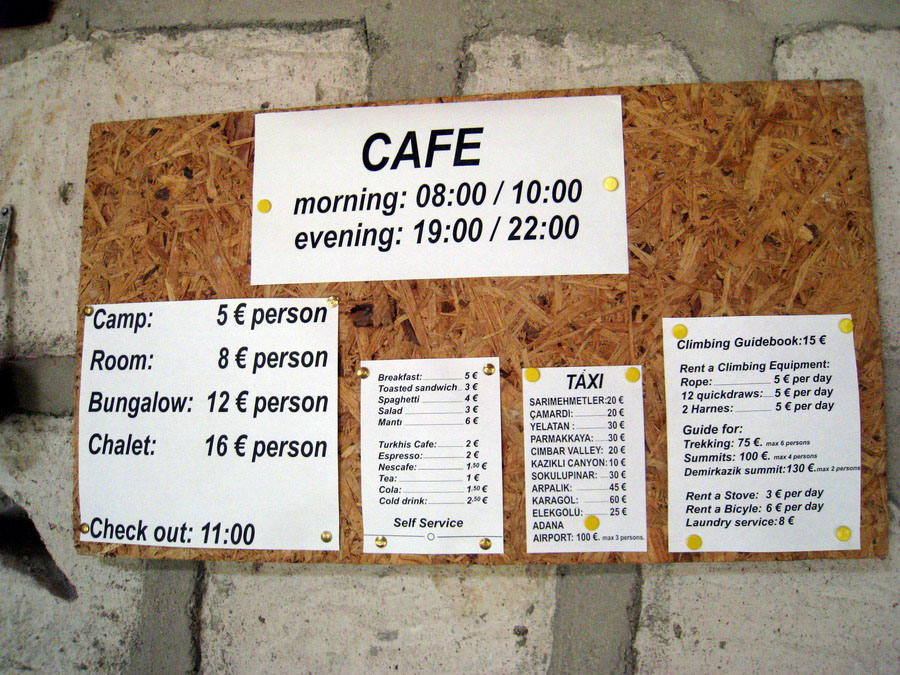 CAFE
morning: 08:00 / 10:00
evening: 19:00 / 22:00
Camp: 5 € person
Room: 8 € person
Bungalow: 12 € person
Chalet: 16 € person
Check out: 11:00
Breakfast: 5 €
Toasted sandwich 3 €
Spaghetti 4 €
Salad 3 €
Mantı 6 €
Turkhis Cafe: 2 €
Espresso: 2 €
Nescafe: 1.50 €
Tea: 1 €
Cola: 1.50 €
Cold drink: 2.50 €
Self Service
TAXI
SARIMEHMETLER:20 €
ÇAMARDI: 20 €
YELATAN : 30 €
PARMAKKAYA: 30 €
CIMBAR VALLEY: 20 €
KAZIKLI CANYON: 10 €
SOKULUPINAR: 30 €
ARPALIK: 45 €
KARAGÖL: 60 €
ELEKGOLÜ: 25 €
ADANA
AIRPORT: 100 €. max 3 persons.
Climbing Guidebook:15 €
Rent a Climbing Equipment:
Rope: 5 € per day
12 quickdraws: 5 € per day
2 Harnes: 5 € per day
Guide for:
Trekking: 75 €. max 6 persons
Summits: 100 €. max 4 persons
Demirkazik summit:130 €.max 2 persons
Rent a Stove: 3 € per day
Rent a Bicyle: 6 € per day
Laundry service:8 €